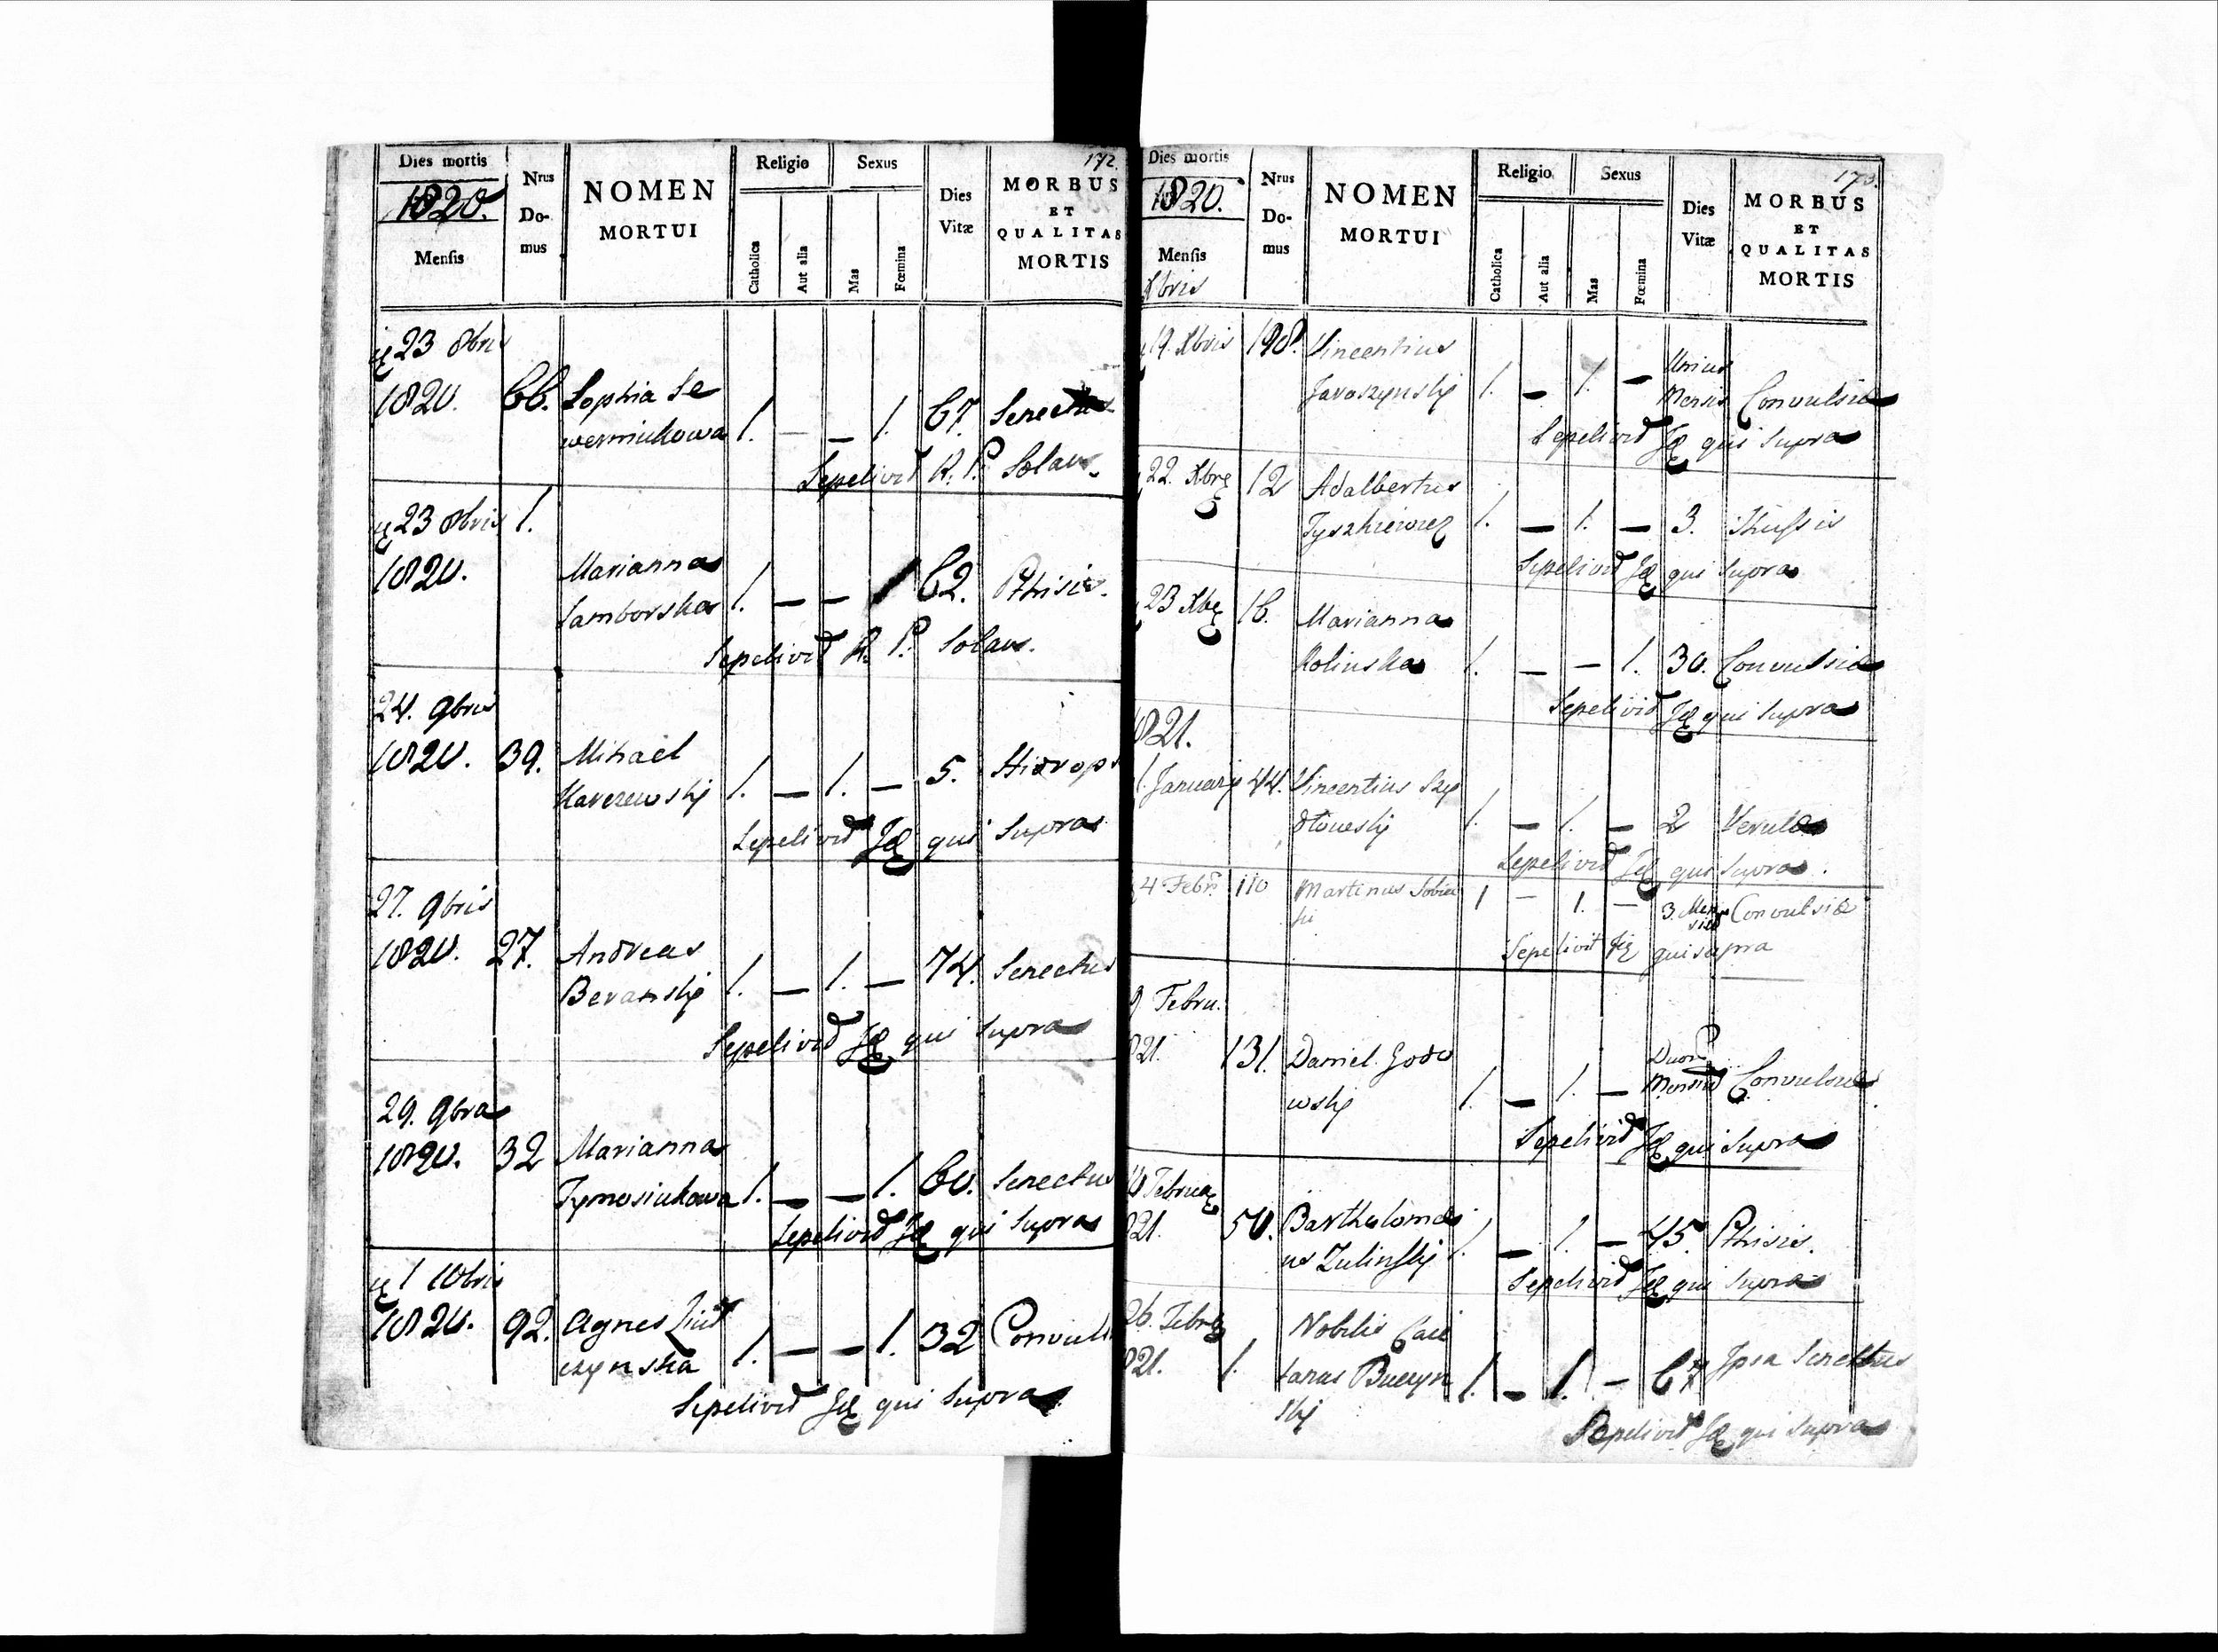 Dies mortis
1820.
Mensis
Nrus
Do-
mus
NOMEN
MORTUI
Religio
Catholica
Aut alia
Sexus
Mas
Fœmina
Dies
Vitæ
172.
MORBUS
ET
QUALITAS
MORTIS
23 8bris
1820. 66. Sophia Se
werniukowa 1. — — 1. 67. Senectus
Sepelivit R. P. Solaus
23 8bris 1.
1820. Marianna
Samborska 1. — — 1 62. Pthisis.
Sepelivit R. P. Solaus.
24. 9bris
1820. 39. Mihael
Karczewskij 1. — 1. — 5. Hidrops
Sepelivit qui Supra
27. 9bris
1820. 27. Andreas
Beranskij 1. — 1. — 74. Senectus
Sepelivit qui Supra
29. 9bra
1820. 32 Marianna
Tymosiukowa 1. — — 1. 60. Senectus
Sepelivit qui Supra
1 10bris
1820. 92. Agnes
czynska 1. — — 1. 32 Convuls
Sepelivit qui Supra
Dies mortis
1820.
Mensis
Xbris
Nrus
Do-
mus
NOMEN
MORTUI
Religio
Catholica
Aut alia
Sexus
Mas
Fœmina
Dies
Vitæ
173.
MORBUS
ET
QUALITAS
MORTIS
19. Xbris 198. Vincentius
Jaroszynskij 1. — 1. — Unius
Mensis Convulsio
Sepelivit qui Supra
22. Xbre 12 Adalbertus
Tyszkiewicz 1. — 1. — 3. Thussis
Sepelivit qui Supra
23 Xbr 16. Marianna
Kolinska 1. — — 1. 30. Convulsio
Sepelivit qui Supra
1821.
1. Januarij 44. Vincentius Szy
dlowskij 1. — 1. — 2
Sepelivit qui Supra.
4 Febr. 110 Martinus Sobie
ski 1 — 1. — 3. Men
sium Convulsio
Sepelivit qui supra
9 Febru.
821. 131. Daniel Godo
wskij 1. — 1. — Duor.
Mensium Convulsio
Sepelivit qui Supra
Februa
821. 50. Bartholome
us Zulinskij 1. — 1. — 45. Pthisis.
Sepelivit qui Supra
26. Febr
821. 1. Nobilis Caie
tanus Buczyn
skij 1. — 1. — 67 Ipsa Senectus
Sepelivit qui Supra